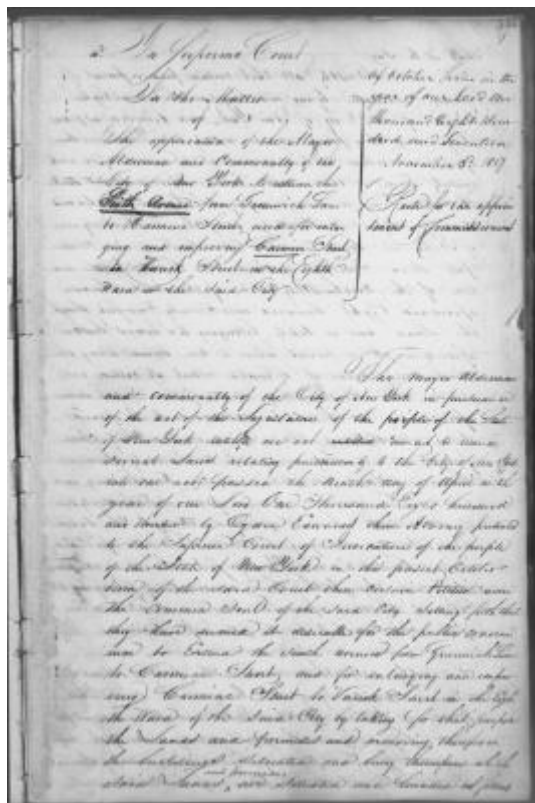 In Supreme Court
In the Matter
of
the application of the Mayor
Aldermen and Commonalty of the
City of New York to extend the
Sixth Avenue from Greenwich Lane
to Carmine Street and for enlar
ging and improving Carmine Street
to Varick Street in the Eighth
Ward of the Said City
of October Term in the
year of our Lord One
thousand Eight Hun
dred and
November
Rule for the appoin
tment of Commissioners
The Mayor Aldermen
and Commonalty of the City of New York in pursuance
of the act of the Legislature of the people of the State
of New York an act to reduce
several Laws relating particularly to the City of New York
into one act passed the Ninth day of April in the
year of our Lord One Thousand Eight hundred
and thirteen by their Attorney presented
to the Supreme Court of Judicature of the people
of the State of New York in this present October
term of the said Court their certain Petition under
the Common Seal of the Said City Setting forth that
they have deemed it desirable for the public conven
to Extend the Sixth Avenue from Greenwich Lane
to Carmine Street, and for enlarging and impro
ving Carmine Street to Varick Street in the Eigh
th Ward of the Said City by taking for that purpose
the Lands and premises and removing therefrom
the buildings and being thereupon which
said Lands and premises are situated and